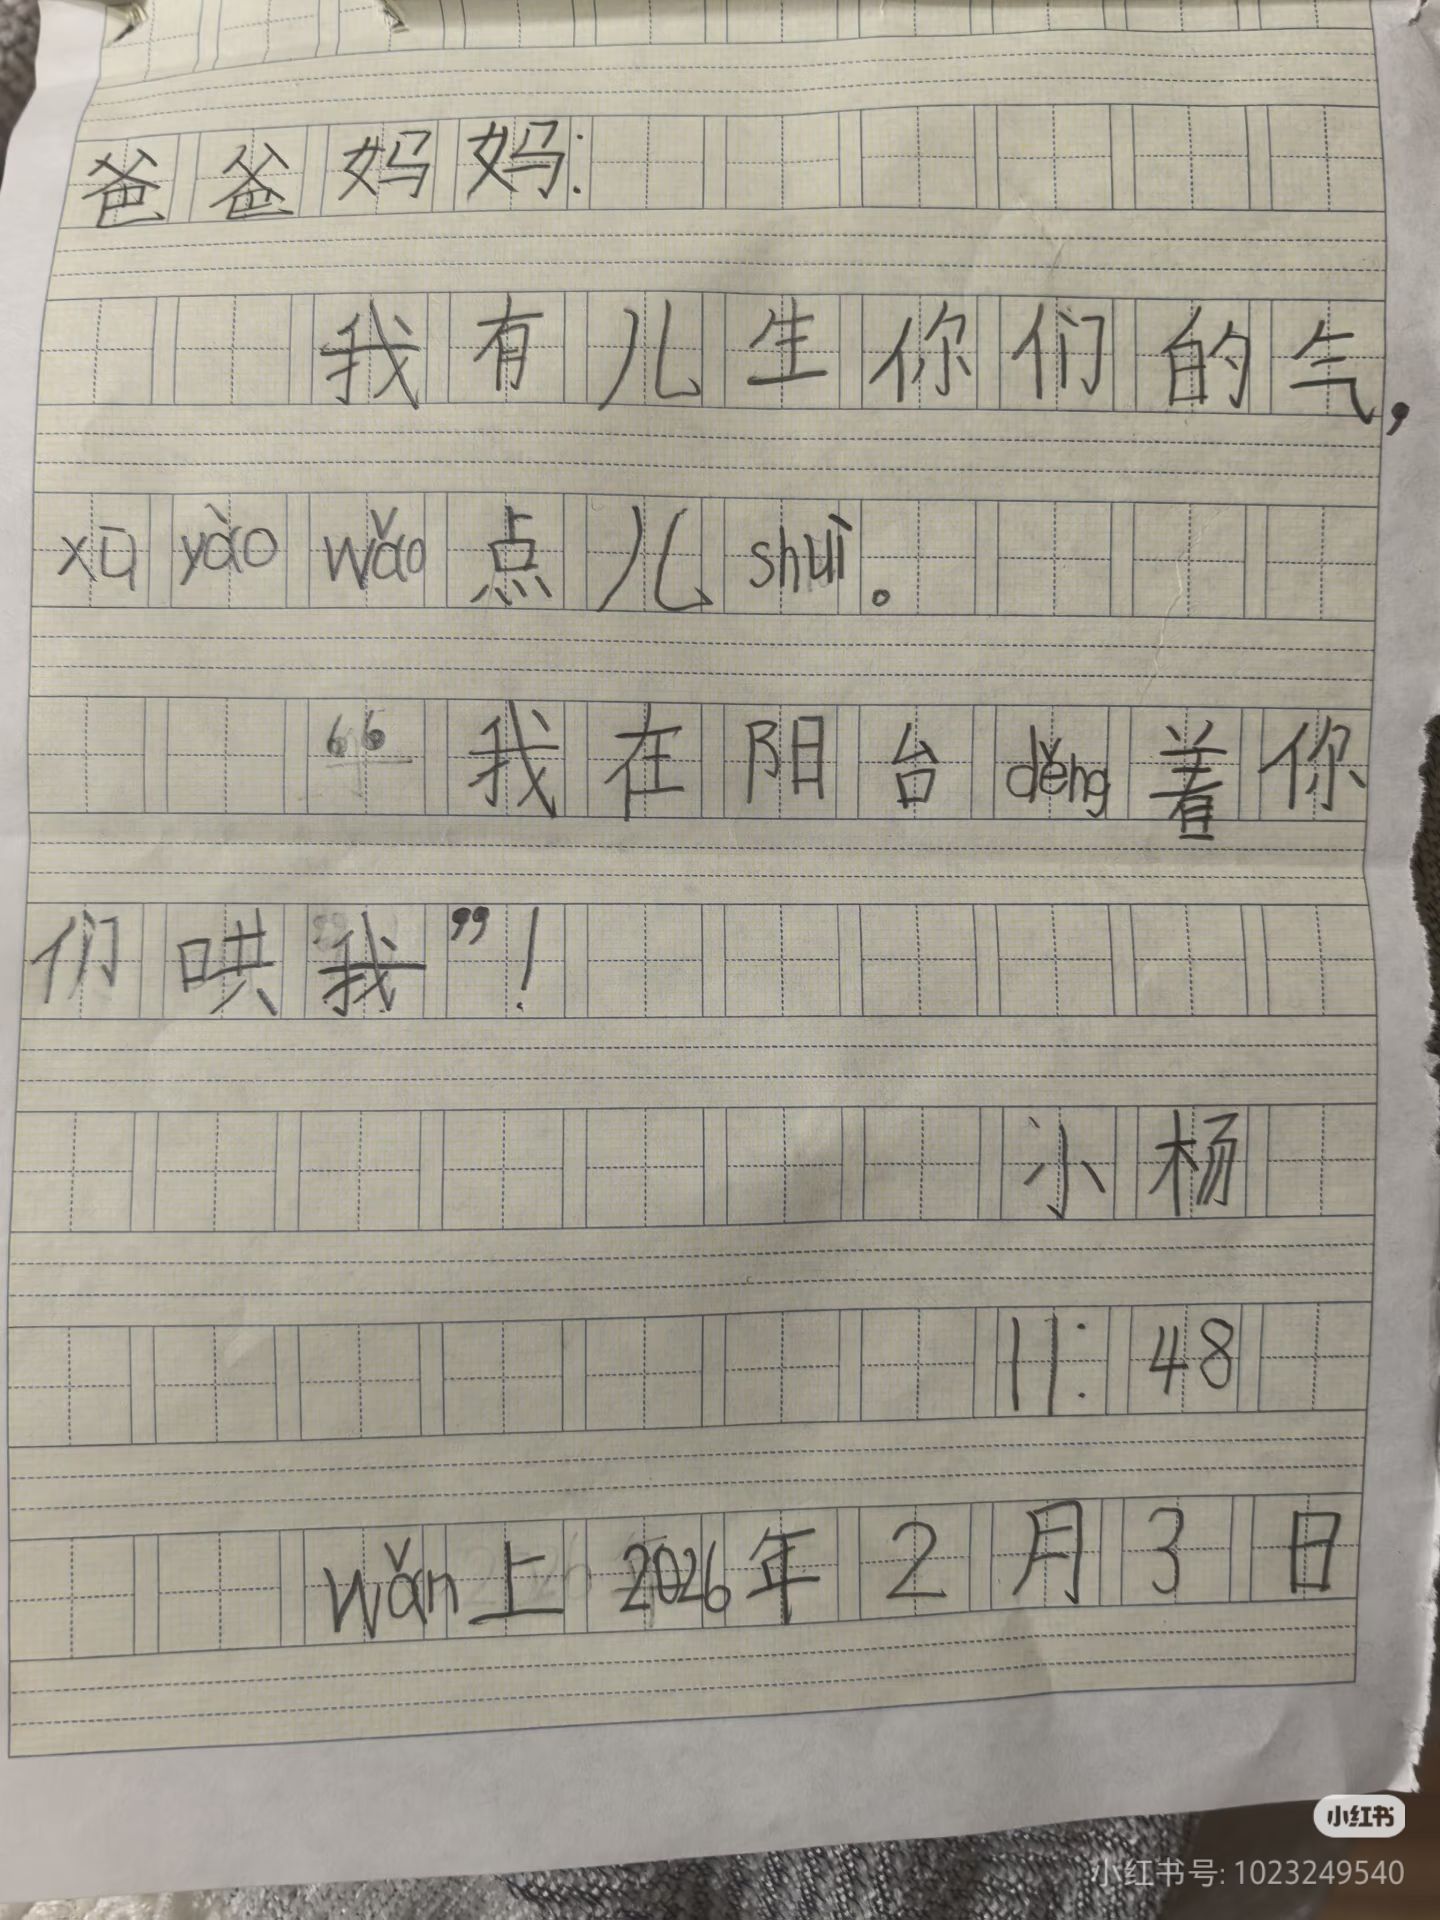 爸爸妈妈:
我有儿生你们的气,
xū yào wǎo点儿shuì。
“我在阳台děng着你
们哄我”!
小杨
11:48
wǎn上2026年2月3日
小红书
小红书号: 1023249540